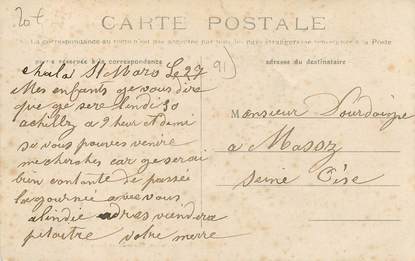 20€
CARTE POSTALE
La correspondance au recto n'est pas acceptée par tous les pays étrangers à la Poste
réservé à la correspondance
adresse du destinataire
St Maro Le 27
91)
Mes enfants ge vous dire
que ge sere lendi 30
a 9 heur et demi
vous pouves venire
me cherches car ge serai
bien contante de passée
la gournée avec vous
adres viendera
petaitre votre merre
Monsieur
a
seine Oise